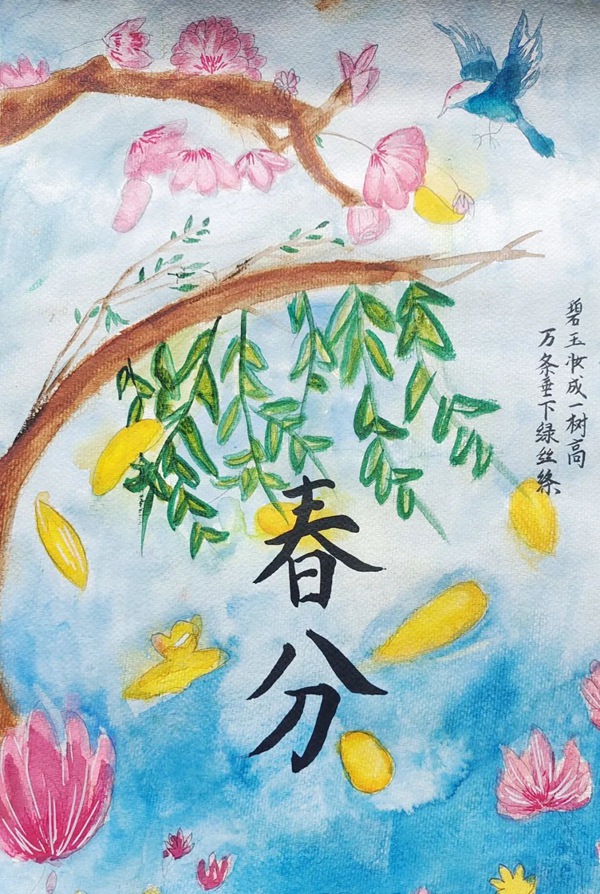 碧玉妆成一树高
万条垂下绿丝绦
春分